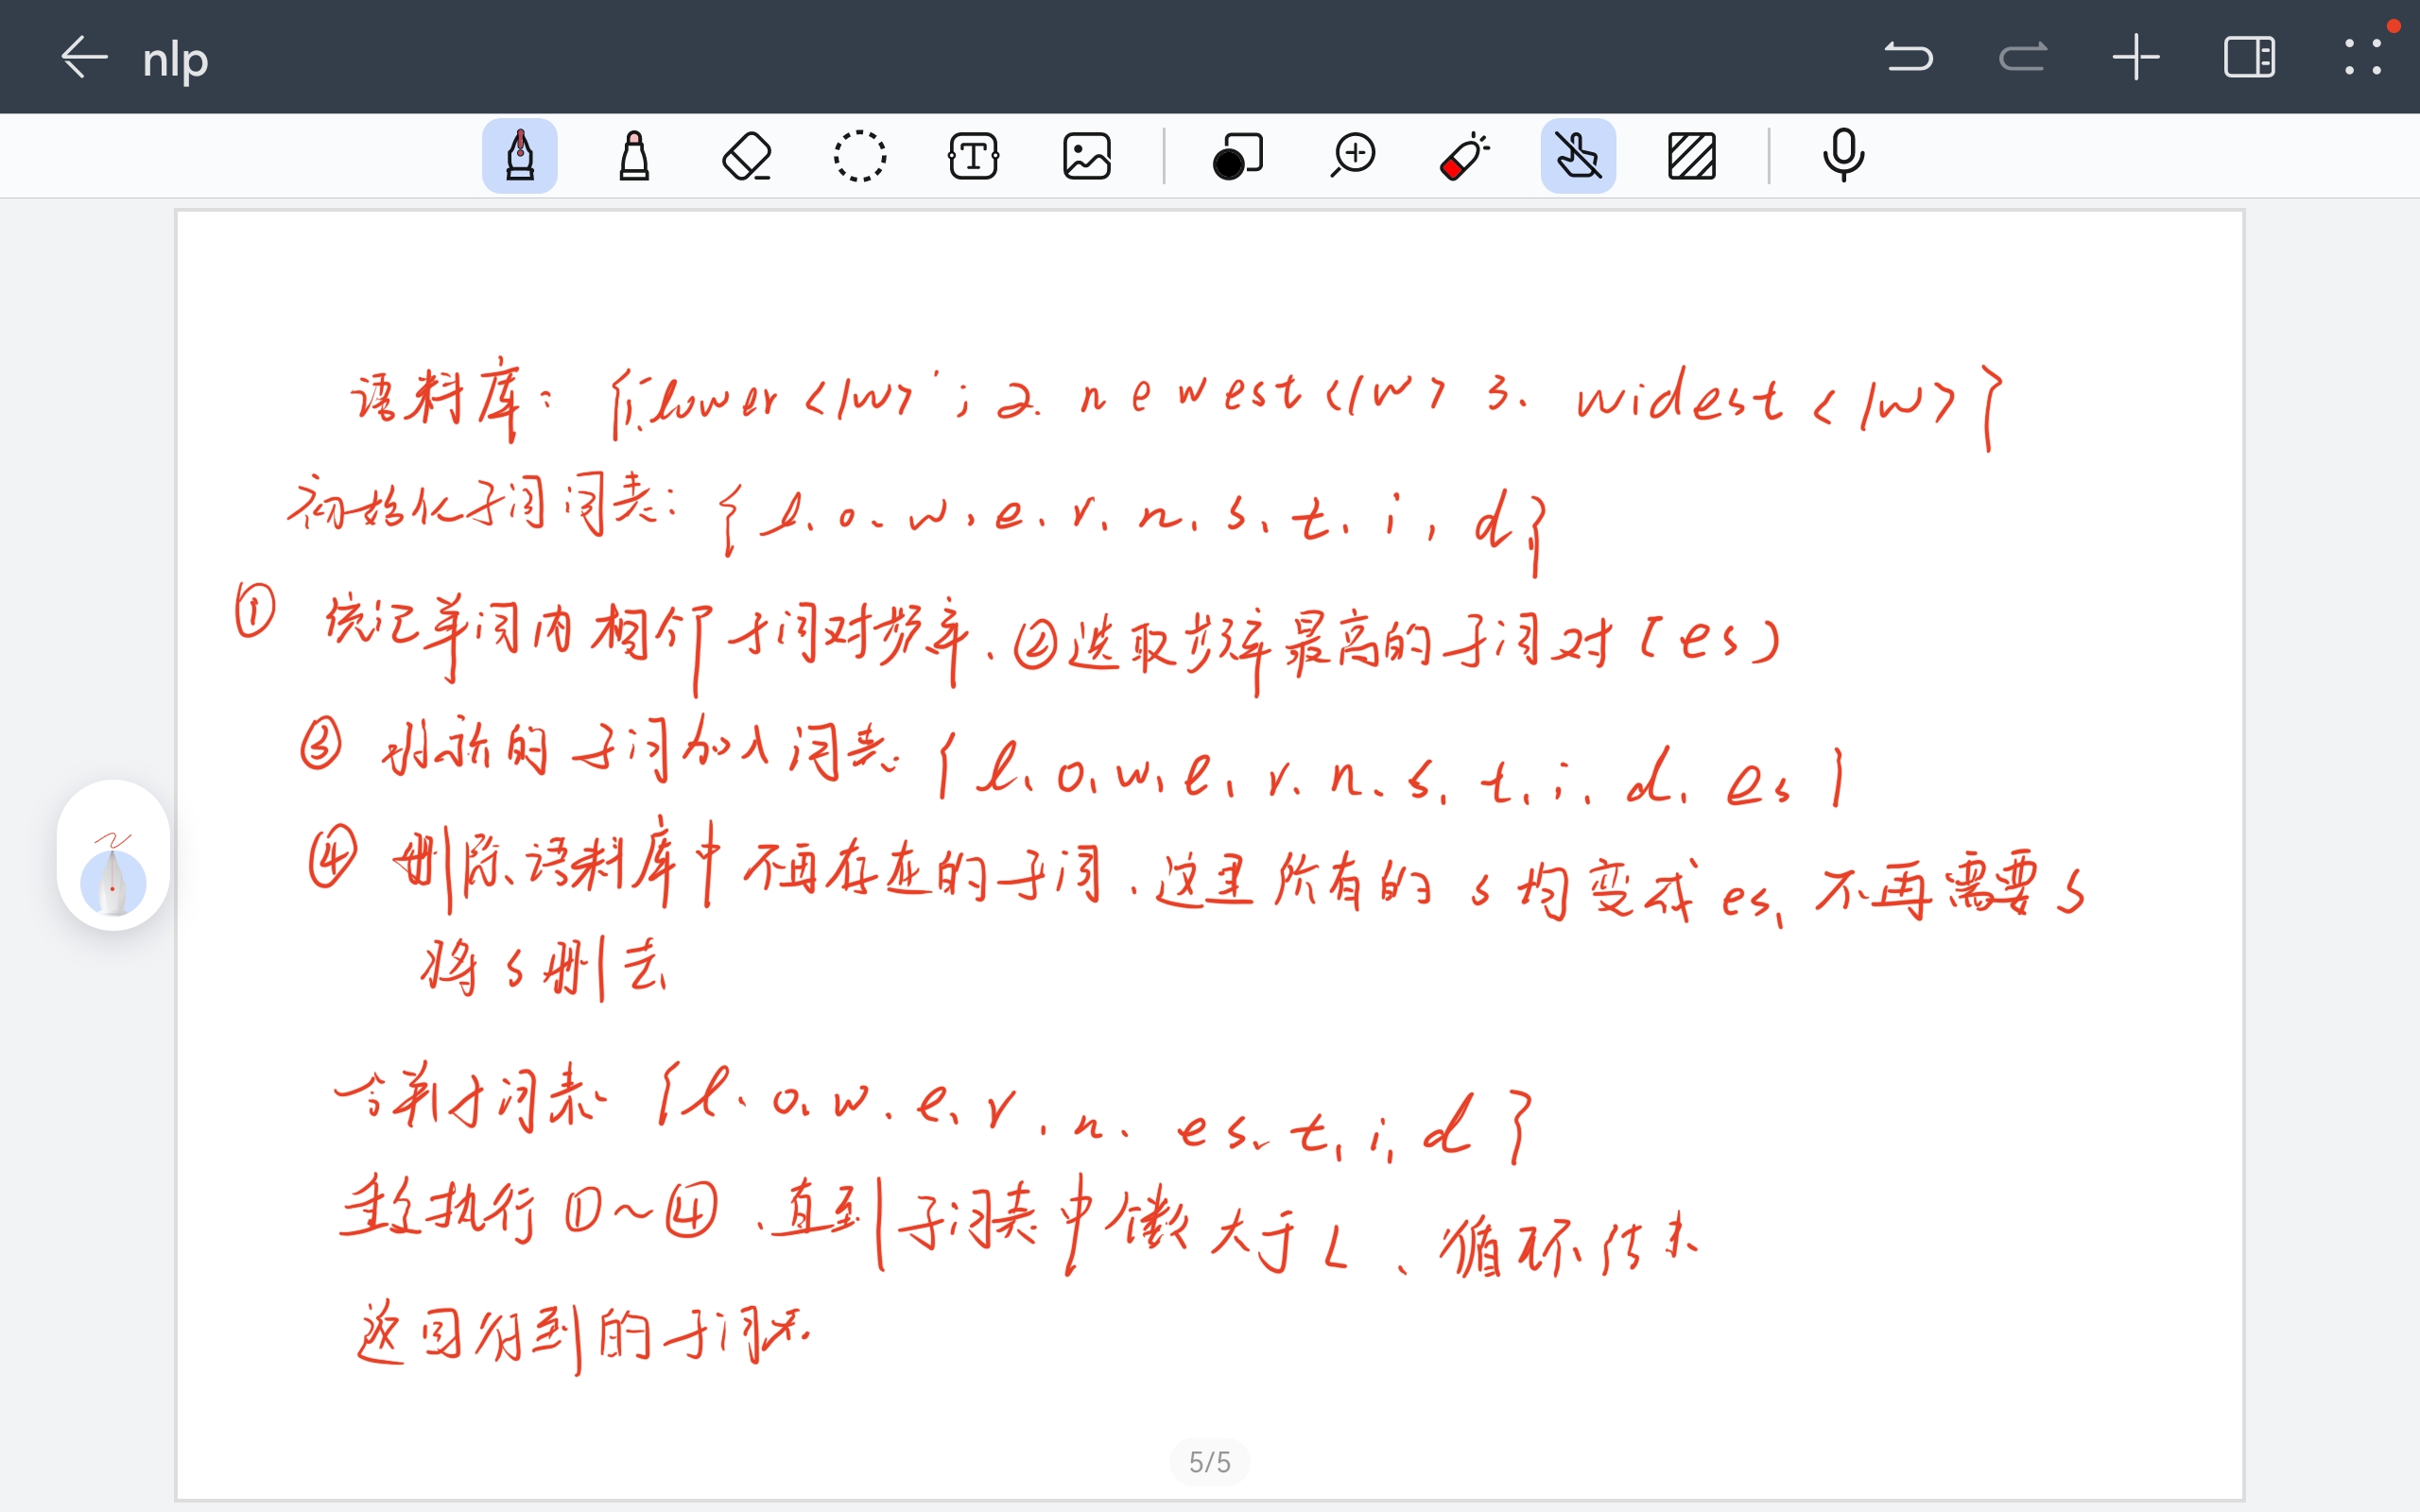 nlp
语料库：{1.lower</w>'；2. newest</w> 3. widest</w>}
初始化子词词表：{l、o、w、e、r、n、s、t、i、d}
① 统记单词内相邻子词对频率、②选取频率最高的子词对(es)
③ 将新的子词加入词表：{l、o、w、e、r、n、s、t、i、d、es}
④ 删除语料库中不再存在的子词、这里所有的s均变成es，不再需要s
将s删去
合并子词表：{l、o、w、e、r、n、es、t、i、d}
重复执行①~④、直到子词表中个数大于L、循环结束
返回得到的子词表
5/5